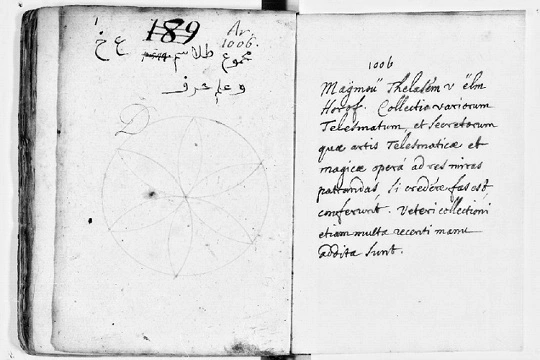 189
Ar.
1006.
ع خ
مجموع طلاسم
وعلم حرف
1006
Magmou Thelasem v elm
Horof. Collectio variorum
Telesmatum, et secretorum
quæ artis Telesmaticæ et
magicæ operâ ad res miras
patrandas, si credere fas est,
conferunt. Veteri collectioni
etiam multa recenti manu
addita sunt.